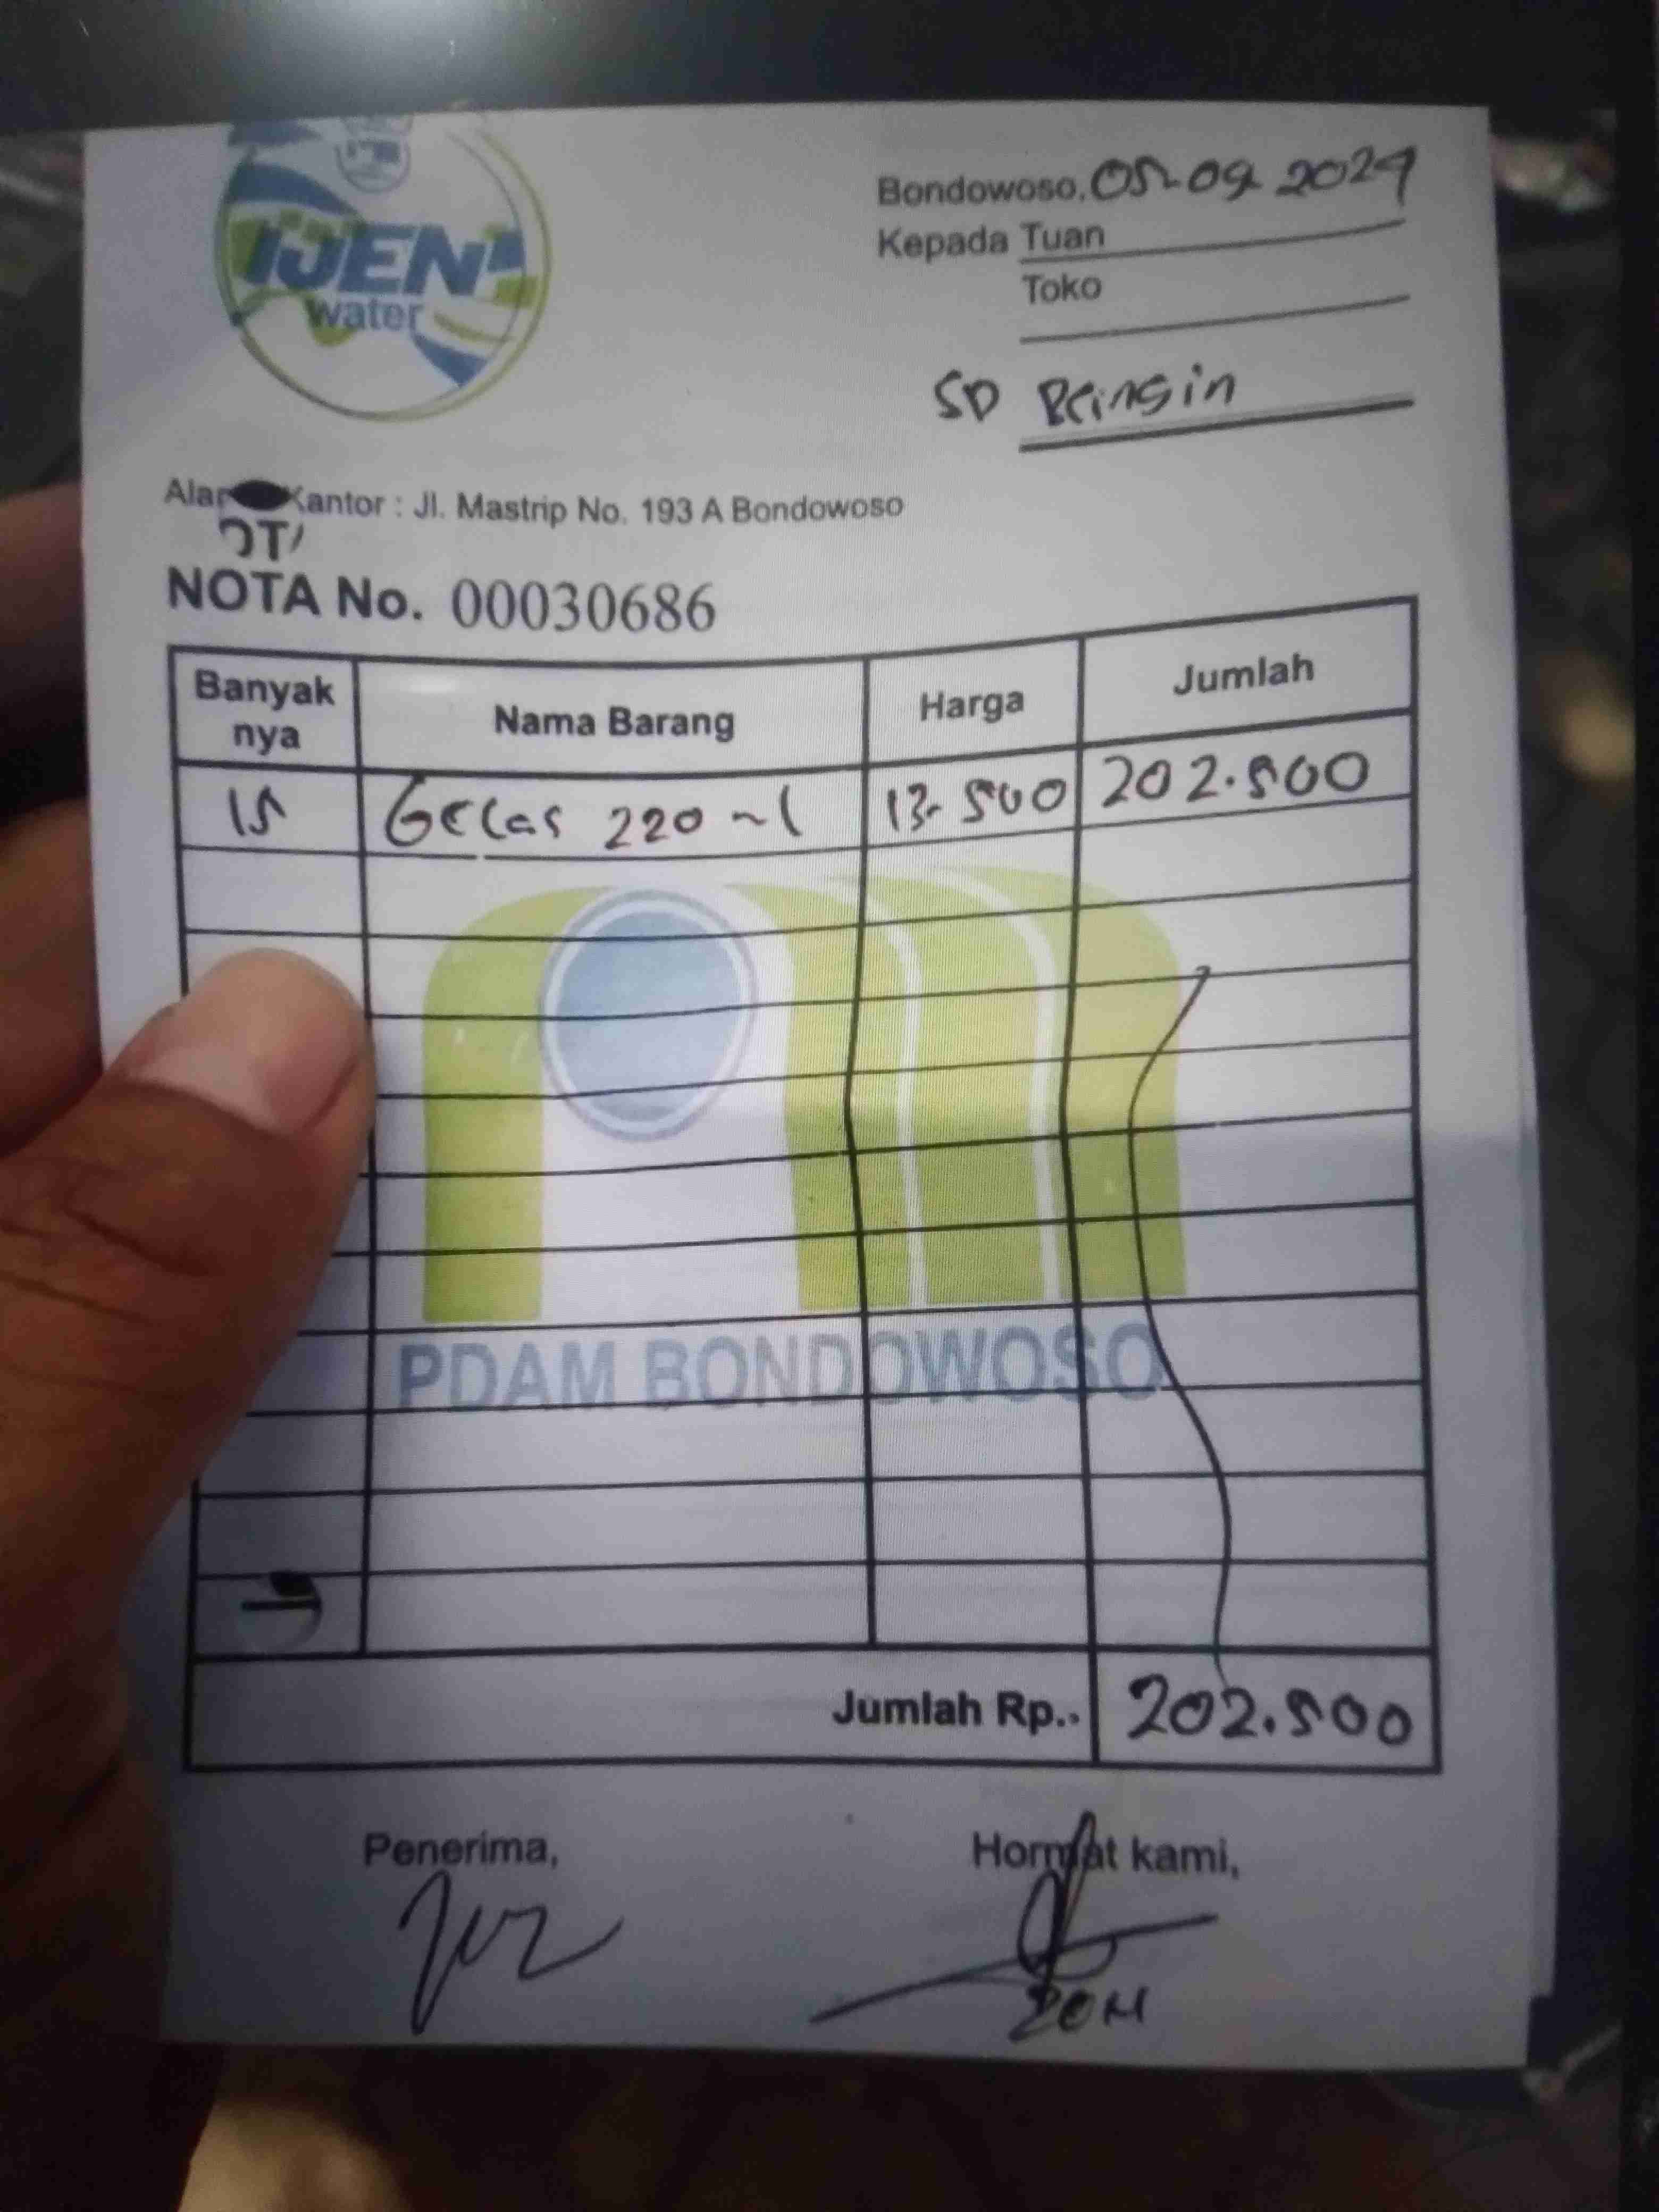 IJEN
water
Bondowoso, 05-09-2024
Kepada Tuan
Toko
SD Beringin
Kantor : Jl. Mastrip No. 193 A Bondowoso
NOTA No. 00030686
Banyak nya Nama Barang Harga Jumlah
15 Gelas 220 ml 13.500 202.500
PDAM BONDOWOSO
Jumlah Rp.. 202.500
Penerima, Hormat kami,